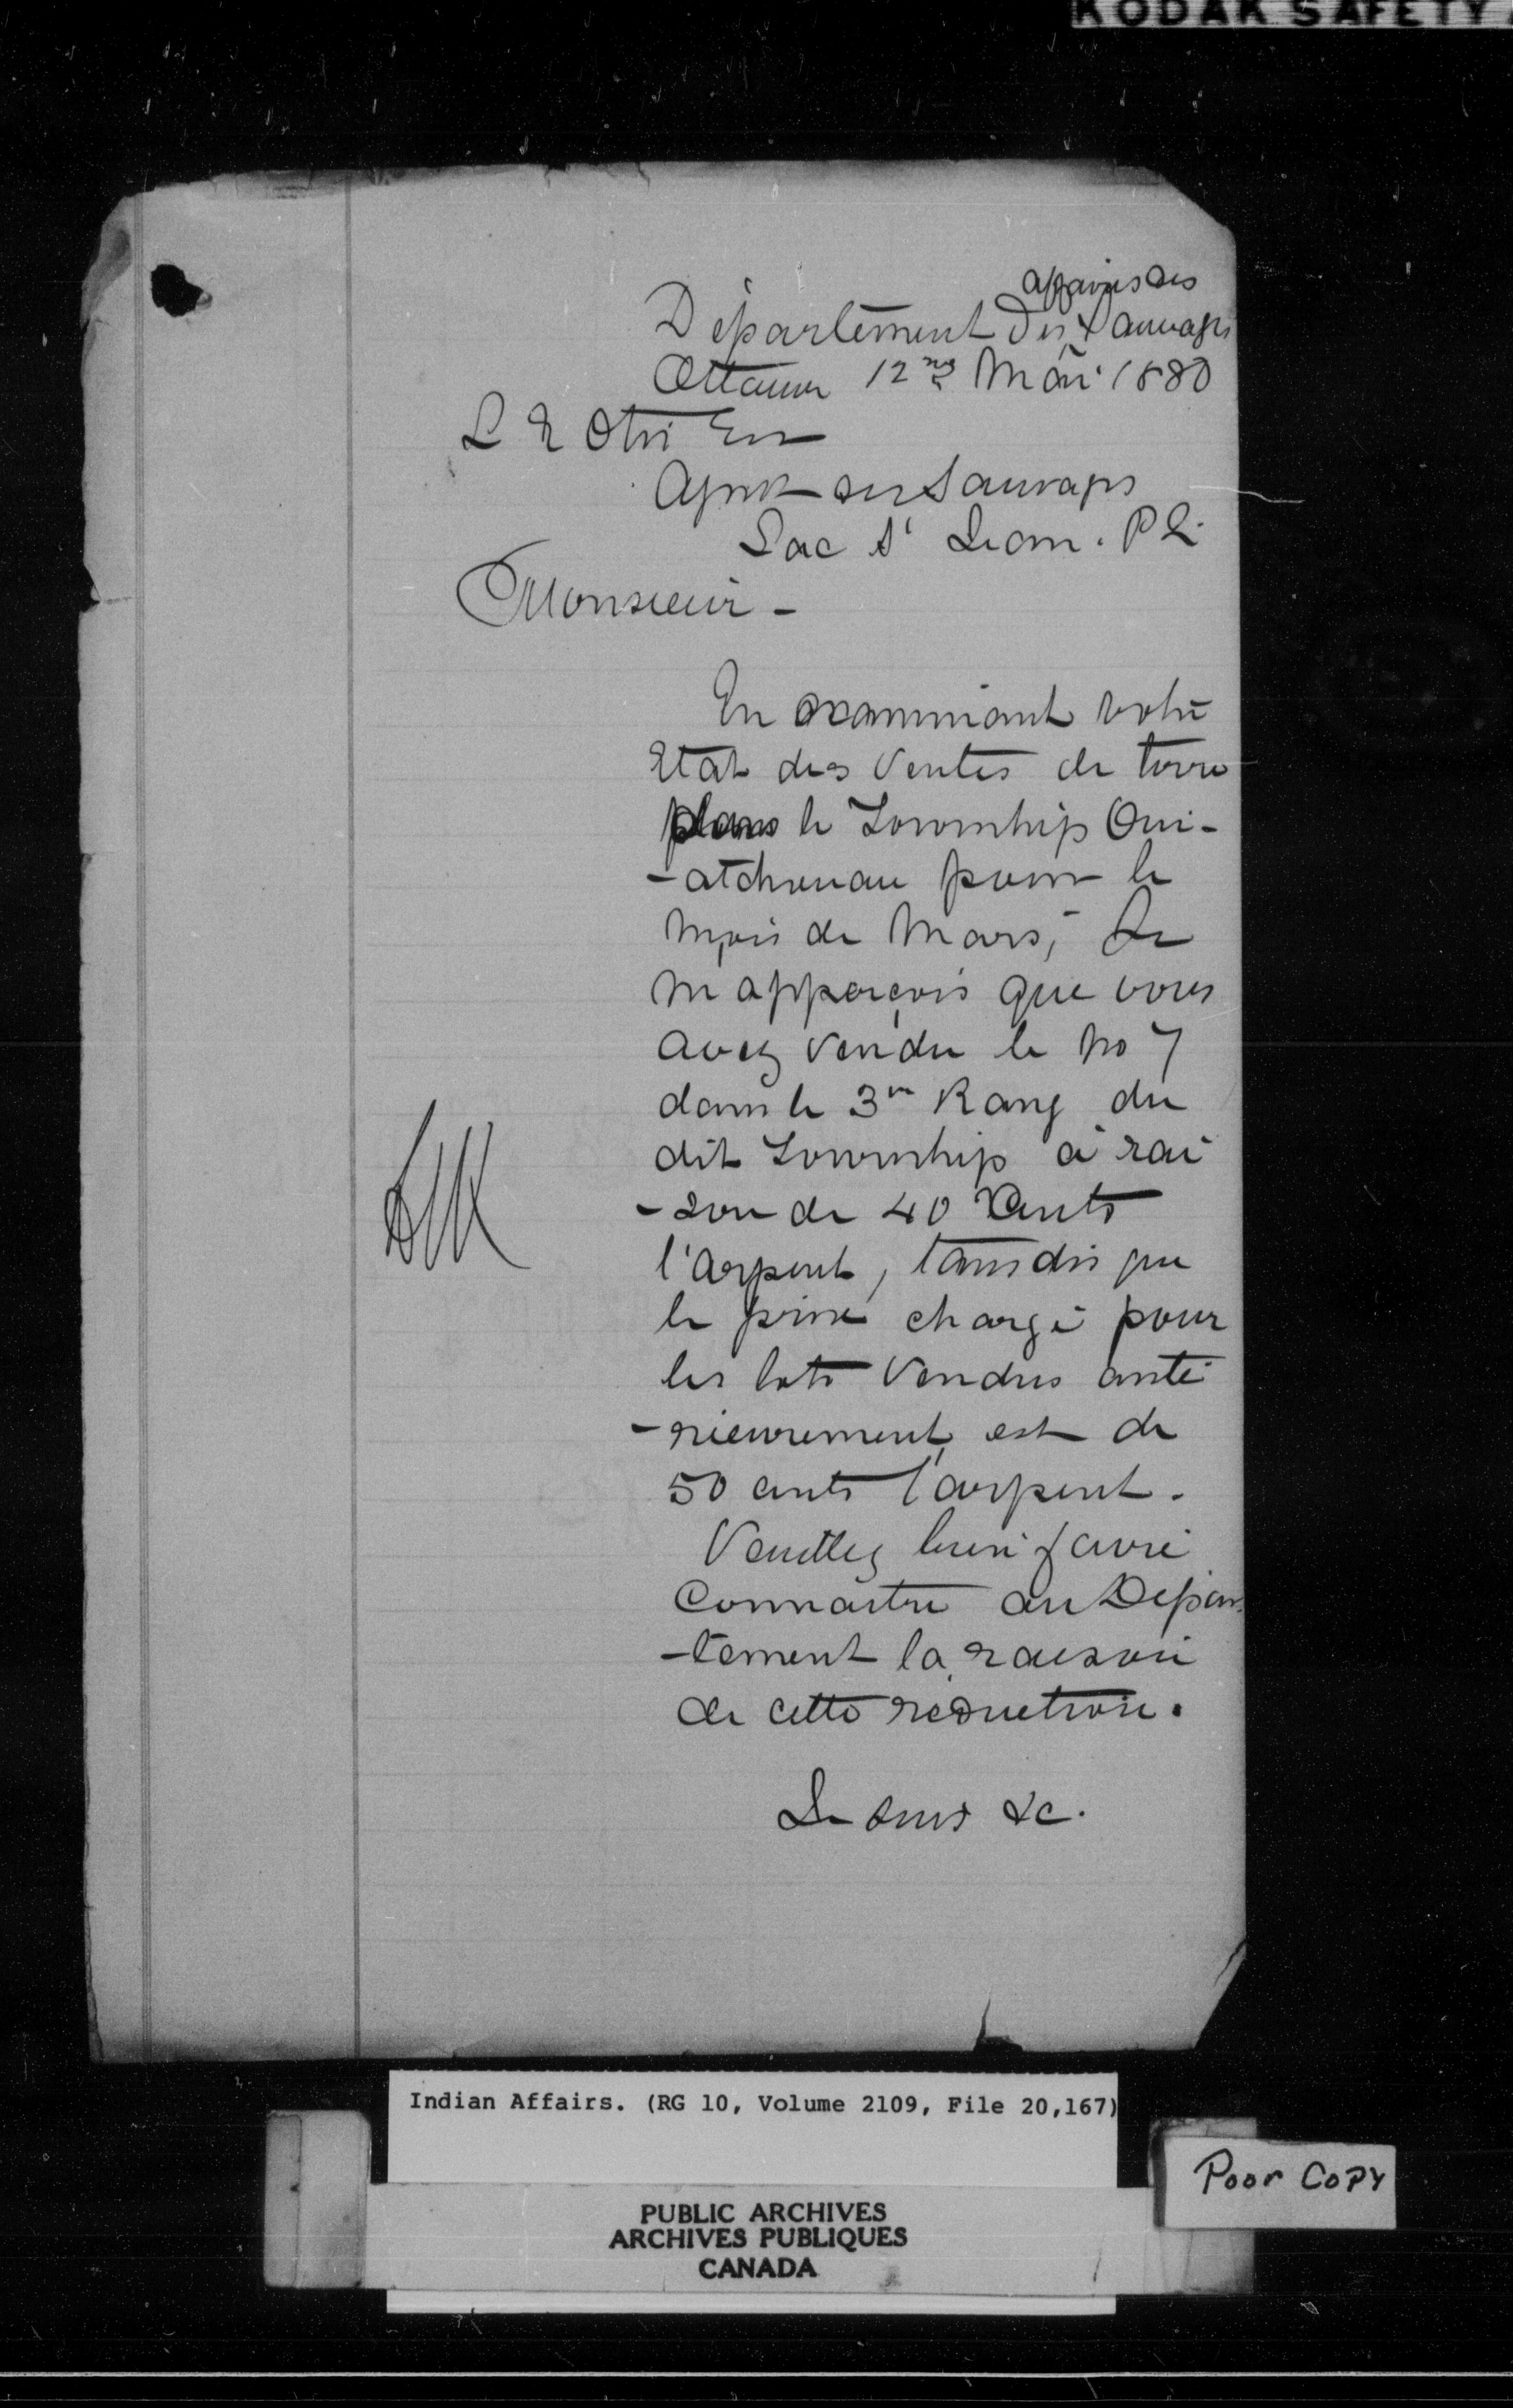 KODAK SAFETY
affaires des
Département des Sauvages
Ottawa 12me Mai 1880
L E Otis Esr
Agent des Sauvages
Lac St Jean. P Q.
Monsieur -
En examinant votre
Etat des Ventes de terre
dans le Township Oui-
-atchouan pour le
Mois de Mars, Je
m'apperçois que vous
avez vendu le No 7
dans le 3me Rang du
dit Township à rai
-son de 40 Cents
l'arpent, tandis que
le prix chargé pour
les lots Vendus anté
-rieurement est de
50 cents l'arpent.
Veuillez bien faire
Connaitre au Dépar
-tement la raison
de cette réduction.
Je suis &c.
Indian Affairs. (RG 10, Volume 2109, File 20,167)
PUBLIC ARCHIVES
ARCHIVES PUBLIQUES
CANADA
Poor Copy